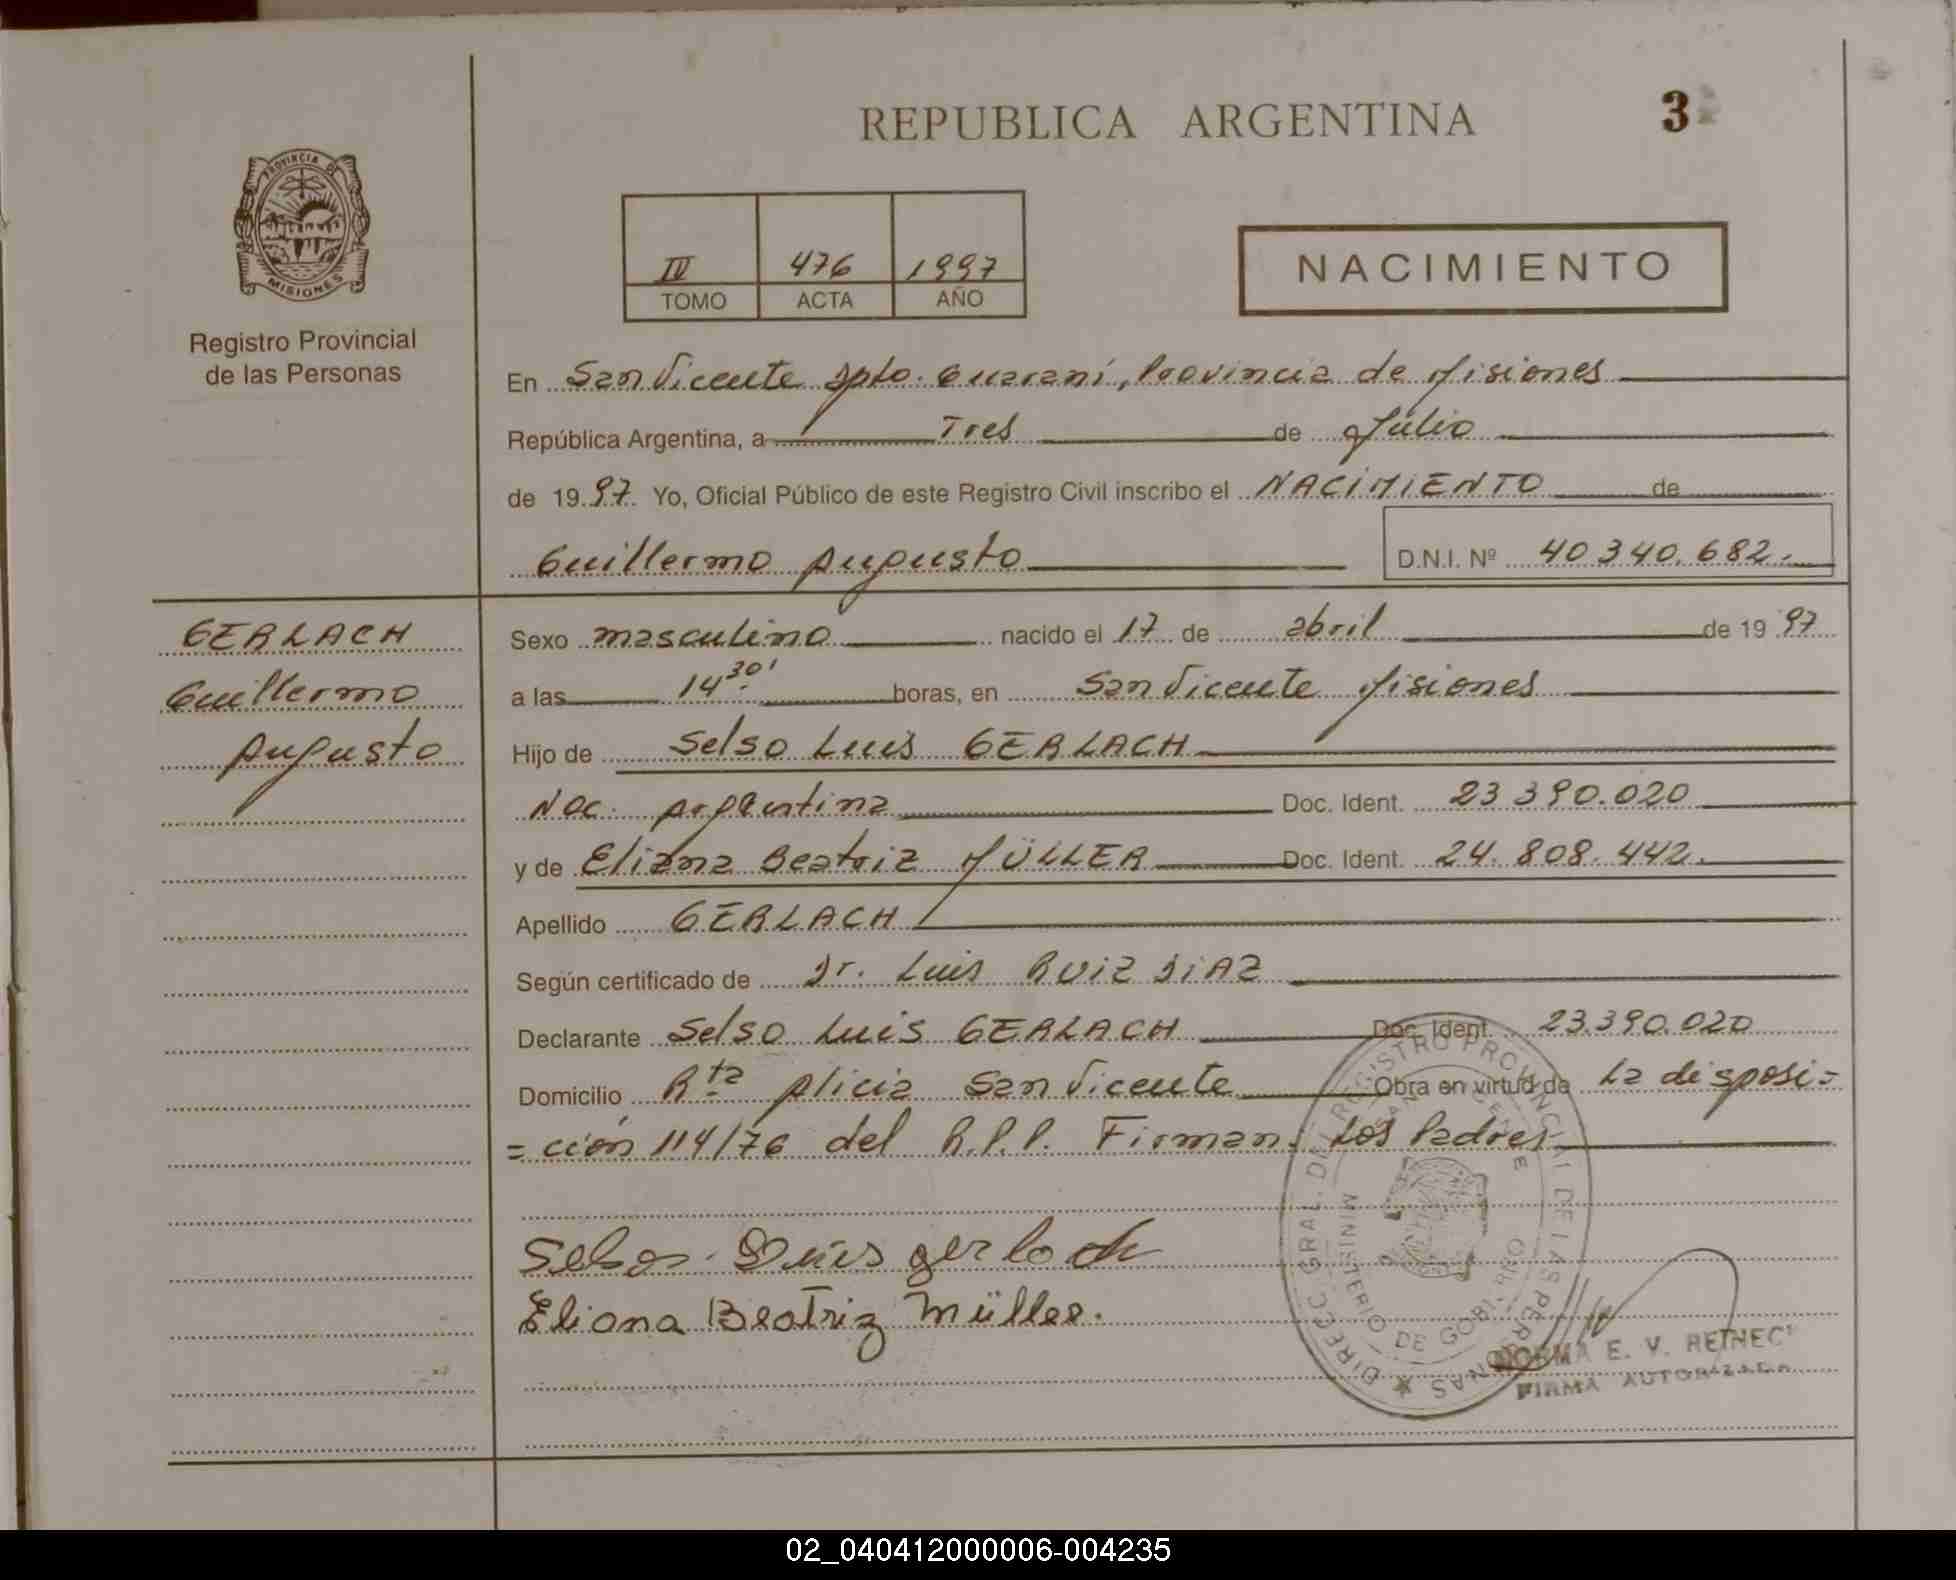 REPUBLICA ARGENTINA
3
PROVINCIA DE
MISIONES
Registro Provincial
de las Personas
IV 476 1997
TOMO ACTA AÑO
NACIMIENTO
En San Vicente Dpto. Guaraní, Provincia de Misiones
República Argentina, a Tres de Julio
de 1997 Yo, Oficial Público de este Registro Civil inscribo el NACIMIENTO de
Guillermo Augusto D.N.I. Nº 40 340.682.
GERLACH
Guillermo
Augusto
Sexo masculino nacido el 17 de abril de 1997
a las 14 30' horas, en San Vicente Misiones
Hijo de Selso Luis GERLACH
Nac. Argentina Doc. Ident. 23 390.020
y de Eliana Beatriz MÜLLER Doc. Ident. 24.808.442.
Apellido GERLACH
Según certificado de Dr. Luis RUIZ DIAZ
Declarante Selso Luis GERLACH Doc. Ident. 23.390.020
Domicilio Rta Alicia San Vicente Obra en virtud de La disposi=
=ción 114/76 del R.P.P. Firman. Los Padres
Luis gerlach
Eliana Beatriz Müller.
DIREC. GRAL. DEL REGISTRO PROVINCIAL DE LAS PERSONAS
SAN VICENTE
MINISTERIO DE GOBIERNO
NORMA E. V. REINECK
FIRMA AUTORIZADA
02_040412000006-004235